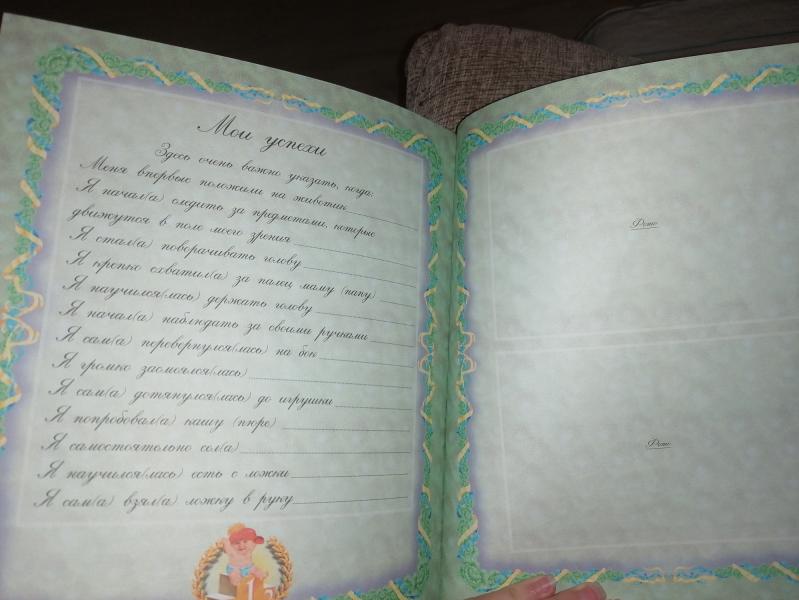 Мои успехи
Здесь очень важно указать, когда:
Меня впервые положили на животик
Я начал(а) следить за предметами, которые
движутся в поле моего зрения
Я стал(а) поворачивать голову
Я крепко схватил(а) за палец маму (папу)
Я научился(лась) держать голову
Я начал(а) наблюдать за своими ручками
Я сам(а) перевернулся(лась) на бок
Я громко засмеялся(лась)
Я сам(а) дотянулся(лась) до игрушки
Я попробовал(а) кашу (пюре)
Я самостоятельно сел(а)
Я научился(лась) есть с ложки
Я сам(а) взял(а) ложку в руку
Фото
Фото